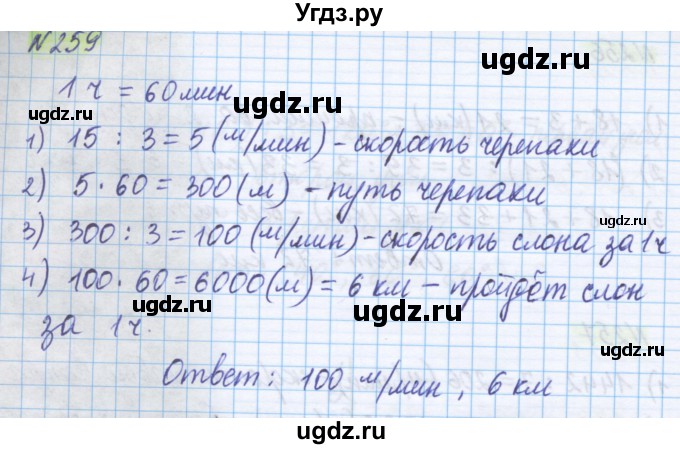 Угдз.ру
N259
1 ч = 60 мин
1) 15 : 3 = 5 (м/мин) - скорость черепахи
2) 5 · 60 = 300 (м) - путь черепахи
3) 300 : 3 = 100 (м/мин) - скорость слона за 1ч
4) 100 · 60 = 6000 (м) = 6 км - пройдёт слон
за 1ч.
Ответ: 100 м/мин, 6 км
ugdz.ru
ugdz.ru
ugdz.ru
ugdz.ru
ugdz.ru
ugdz.ru
ugdz.ru
ugdz.ru
ugdz.ru
ugdz.ru
ugdz.ru
ugdz.ru
ugdz.ru